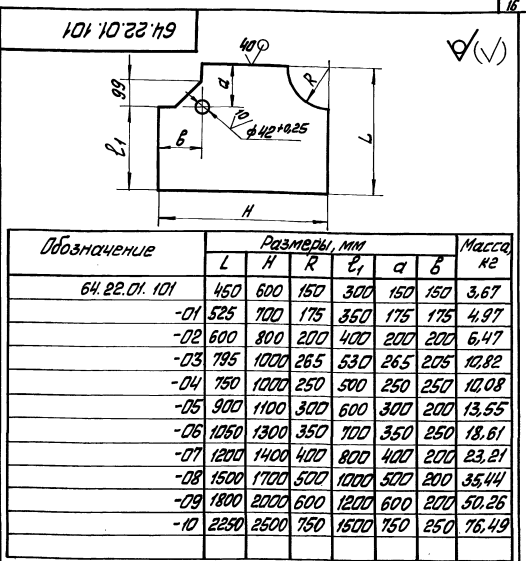 16
64.22.01.101
40
99
a
R
10
L
l1
в
ф42+0,25
H
(√)
Обозначение Размеры, мм Масса, кг
L H R l1 a в
64.22.01.101 450 600 150 300 150 150 3,67
-01 525 700 175 350 175 175 4,97
-02 600 800 200 400 200 200 6,47
-03 795 1000 265 530 265 205 10,82
-04 750 1000 250 500 250 250 10,08
-05 900 1100 300 600 300 200 13,55
-06 1050 1300 350 700 350 250 18,61
-07 1200 1400 400 800 400 200 23,21
-08 1500 1700 500 1000 500 200 35,44
-09 1800 2000 600 1200 600 200 50,26
-10 2250 2500 750 1500 750 250 76,49